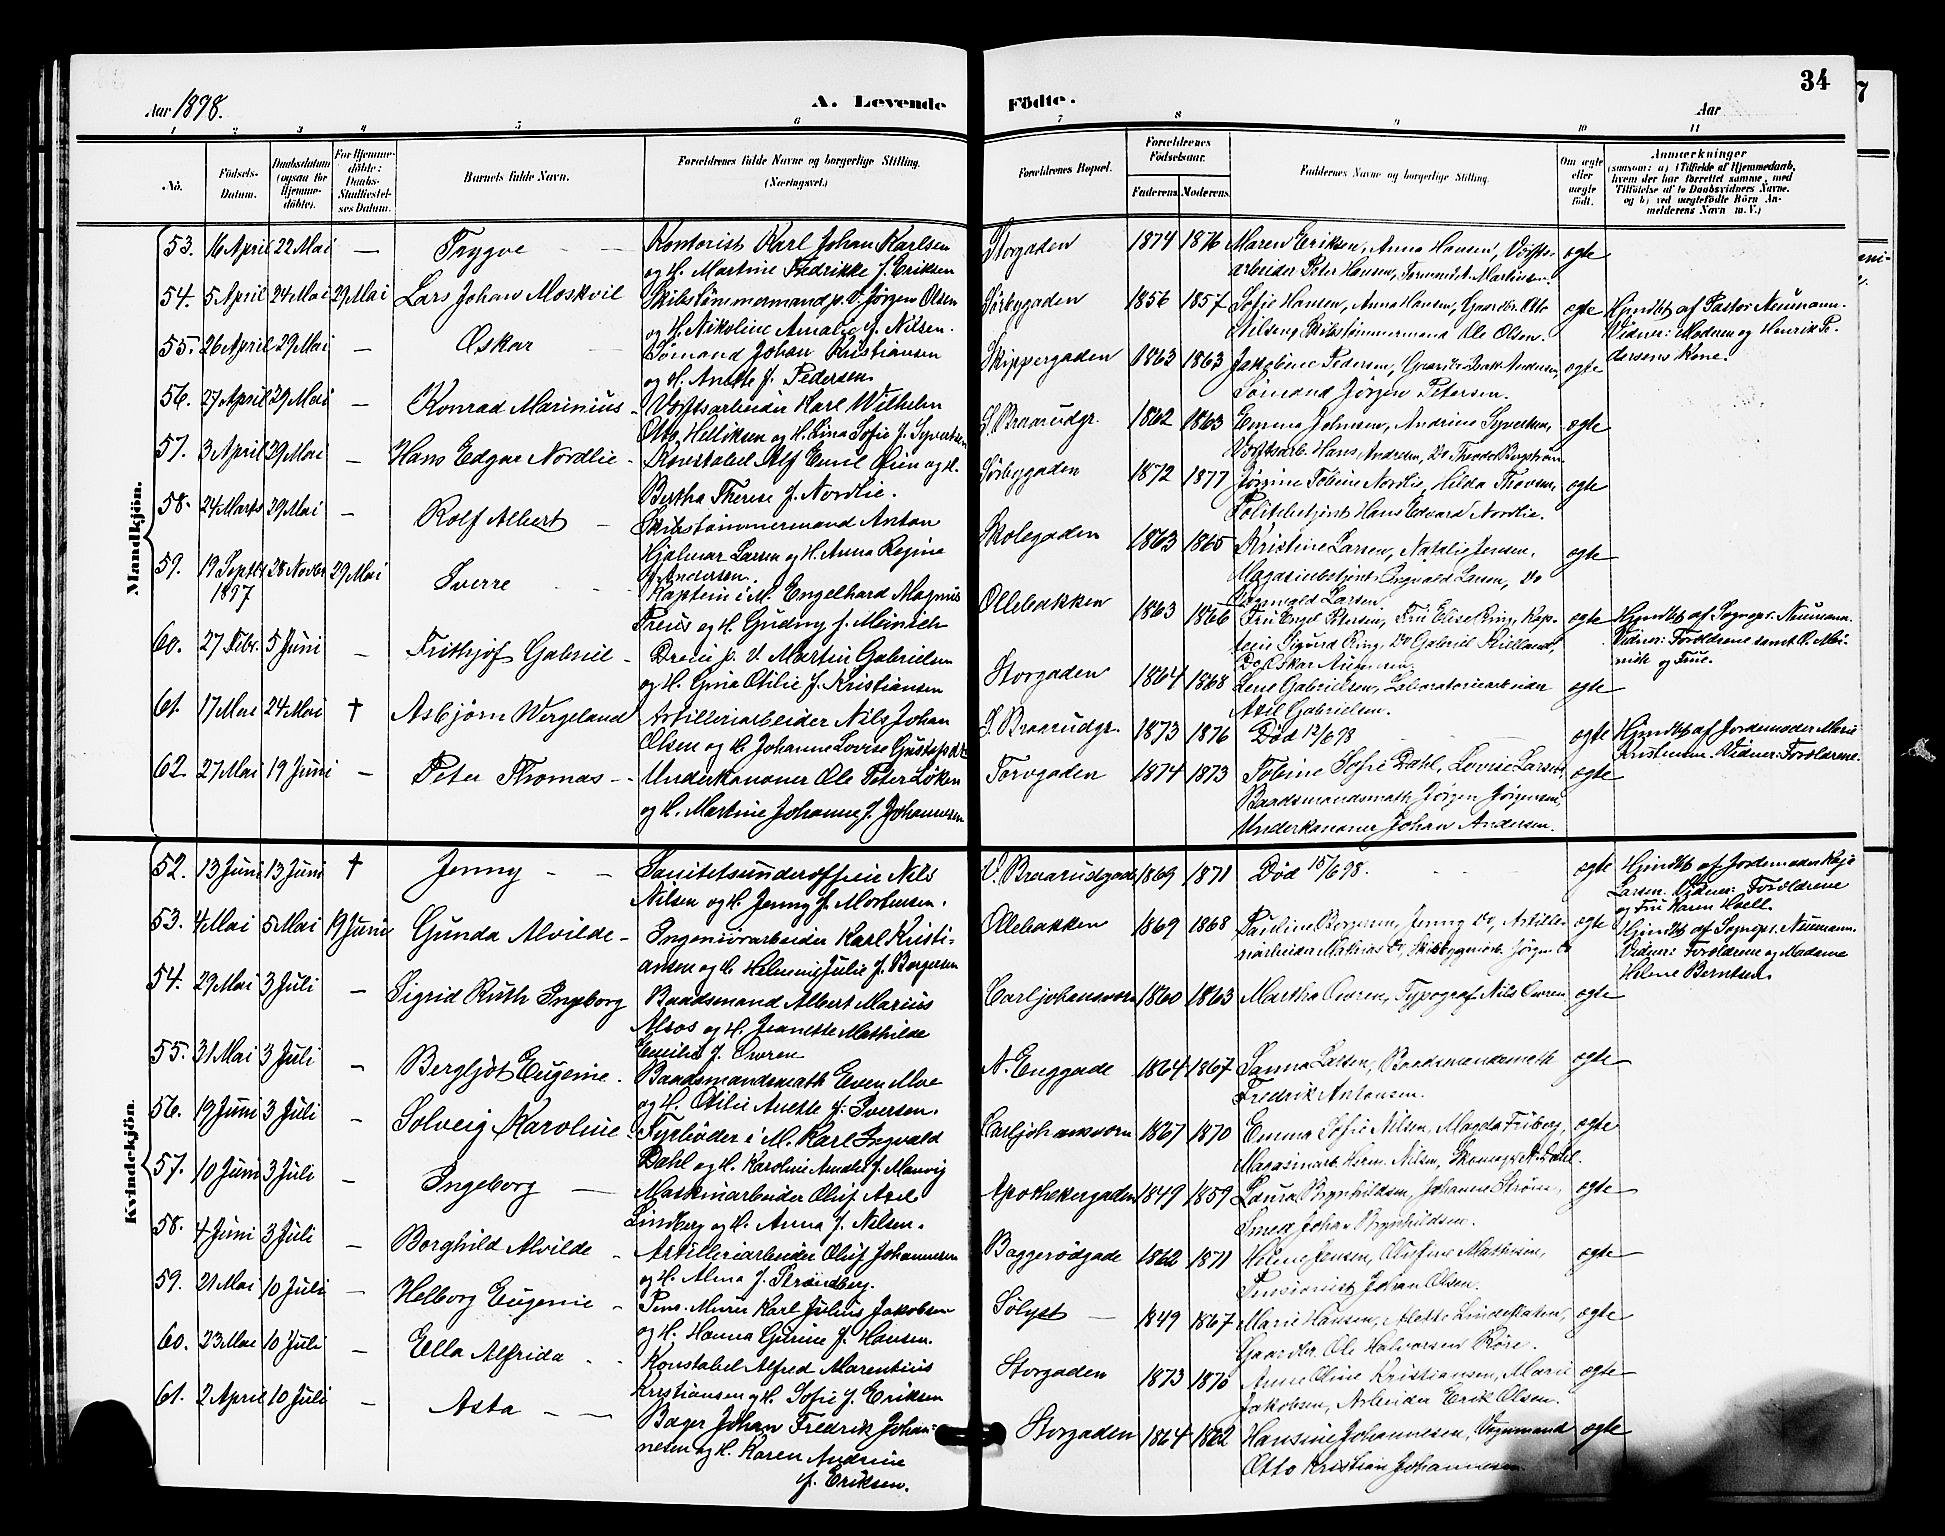 34
Aar 1898.
A. Levende
Födte.
Aar
1 2 3 4 5 6 7 8 9 10 11
No.
Födsels-Datum.
Daabsdatum (ogsaa for Hjemme-döbte).
For Hjemme-döbte: Daabs-Stadfæstel-ses Datum.
Barnets fulde Navn.
Forældrenes fulde Navne og borgerlige Stilling. (Næringsvei.)
Forældrenes Bopæl.
Forældrenes Födselsaar.
Faderens. Moderens.
Faddernes Navne og borgerlige Stilling.
Om ægte eller uægte födt.
Anmærkninger
(saasom: a) i Tilfælde af Hjemmedaab,
hvem der har forrettet samme, med
Tilföielse af to Daabsvidners Navne.
og b) ved uægtefödte Börn An-
melderens Navn m. V.)
Mandkjön.
53. 16 April 22 Mai — Trygve — Kontorist Karl Johan Karlsen
og H. Martine Fredrikke f. Eriksen
Storgaden 1874 1876 Maren Eriksen, Anna Hansen, Værfts-
arbeider Peter Hansen, Formand A. Martinsen. ægte
54. 5 April 24 Mai 29 Mai Lars Johan Moskvil Skibstömmermand p. V. Jörgen Olsen
og H. Nikoline Amalie f. Nilsen.
Sörbygaden 1856 1857 Sofie Hansen, Anna Hansen, Gaardbr. Otto
Nilsen, Skibstömmermand Ole Olsen. ægte Hjmdbt af Pastor Neumann.
Vidner: Modren og Henrik Pe-
dersens Kone.
55. 26 April 29 Mai — Oskar — Sömand Johan Kristiansen
og H. Anette f. Pedersen.
Skippergaden 1863 1863 Jakobine Pedersen, Andersen,
Sömand Jörgen Petersen. ægte
56. 27 April 29 Mai — Konrad Marinius — Værftsarbeider Karl Wilhelm
Otto Helliksen og H. Lina Sofie f. Syvertsen
S. Braarudgr. 1862 1863 Emma Johnsen, Andrine Syvertsen,
Værftsarb. Hans Andresen, Do Theodor Bergström ægte
57. 3 April 29 Mai — Hans Edgar Nordlie — Konstabel Alf Emil Öien og H.
Bertha Therese f. Nordlie.
Sörbygaden 1872 1877 Jörgine Tobine Nordlie, Hilda Thoresen,
Politibetjent Hans Edvard Nordlie. ægte
58. 24 Marts 29 Mai — Rolf Albert — Skibstömmermand Anton
Hjalmar Larsen og H. Anna Regine
f. Andersen.
Skolegaden 1863 1865 Kristine Larsen, Natalie Jensen,
Magasinbetjent Ingvald Larsen, Do
Ragnvald Larsen. ægte
59. 19 Septbr 1897 28 Novbr 29 Mai Sverre — Kaptein i M. Engelhard Magnus
Preus og H. Gudny f. Meinich
Ollebakken 1863 1866 Fru Engel Petersen, Fru Elise Ring, Kap-
tein Sigurd Ring, Do Gabriel Kielland,
Do Oskar ægte Hjmdbt af Sognepr. Neumann.
Vidner: Forældrene samt O. Mei-
nich og Frue.
60. 27 Febr. 5 Juni — Frithjof Gabriel — Dreier p. V. Martin Gabrielsen
og H. Gina Otilie f. Kristiansen
Storgaden 1864 1868 Lene Gabrielsen, Laboratoriearbeider
Axel Gabrielsen. ægte
61. 17 Mai 24 Mai † Asbjörn Wergeland Artilleriarbeider Nils Johan
Olsen og H. Johanne Lovise Gustafsd.
S. Braarudgr. 1873 1876 Död 12/6 98 ægte Hjmdbt af Jordemoder Marie
Kristensen. Vidner: Forældrene.
62. 27 Mai 19 Juni — Peter Thomas — Underkanoner Ole Peter Löken
og H. Martine Johanne f. Johannesen
Torvgaden 1874 1873 Tobine Sofie Dahl, Lovise Larsen,
Baadsmandsmath Jörgen Jörgensen,
Underkanoner Johan Andersen. ægte
Kvindekjön.
52. 13 Juni 13 Juni † Jenny — Sanitetsunderofficer Nils
Nilsen og H. Jenny f. Mortensen.
V. Braarudgade 1869 1871 Död 15/6 98. ægte Hjmdbt af Jordemoder Kaja
Larsen. Vidner: Forældrene
og Fru Karen Hoell.
53. 4 Mai 5 Mai 19 Juni Gunda Alvilde — Ingeniörarbeider Karl Kristi-
ansen og H. Helmine Julie f. Borgersen
Ollebakken 1869 1868 Pauline Borgersen, Jenny Do, Artille-
riarbeider Mathias Do, Skibbygmstr. Jörgen Do ægte Hjmdbt af Sognepr. Neumann.
Vidner: Forældrene og Madame
Helene Berntsen.
54. 29 Mai 3 Juli — Sigrid Ruth Ingeborg Baadsmand Albert Marius
Alsos og H. Jeanette Mathilde
Emilie f. Owren
Carljohansværn 1860 1863 Martha Owren, Typograf Nils Owren ægte
55. 31 Mai 3 Juli — Bergljöt Eugenie. Baadsmandsmath Even Moe
og H. Otilie Anette f. Iversen.
N. Enggade 1864 1867 Sanna Larsen, Baadsmandsmath
Fredrik Antonsen. ægte
56. 19 Juni 3 Juli — Solveig Karoline Fyrböder i M. Karl Ingvald
Dahl og H. Karoline Amalie f. Manvig
Carljohansværn 1867 1870 Emma Sofie Nilsen, Magda Friberg,
Magasinarb. Herm. Nilsen, Skomager A. Dahl. ægte
57. 10 Juni 3 Juli — Ingeborg — Maskinarbeider Oluf Axel
Lindberg og H. Anna f. Nilsen.
Apothekergaden 1849 1859 Laura Brynhildsen, Johanne Ström,
Smed Johan Brynhildsen. ægte
58. 4 Juni 3 Juli — Borghild Alvilde — Artilleriarbeider Oluf Johannesen
og H. Alma f. Strandberg.
Baggerödgade 1862 1871 Helene Jensen, Olufine Mathisen,
Pensionist Johan Olsen. ægte
59. 21 Mai 10 Juli — Helborg Eugenie — Pens. Murer Karl Julius Jakobsen
og H. Hanna Gurine f. Hansen.
Sölyst — 1849 1867 Marie Hansen, Alette Lindeskaten,
Gaardbr. Ole Halvorsen Röre. ægte
60. 23 Mai 10 Juli — Ella Alfrida — Konstabel Alfred Marentius
Kristiansen og H. Sofie f. Eriksen
Storgaden 1873 1870 Anne Oline Kristiansen, Marie
Jakobsen, Arbeider Erik Olsen. ægte
61. 2 April 10 Juli — Asta — Bager Johan Fredrik Johan-
nesen og H. Karen Andrine
f. Eriksen.
Storgaden 1864 1862 Hansine Johannesen, Vognmand
Otto Kristian Johannesen. ægte